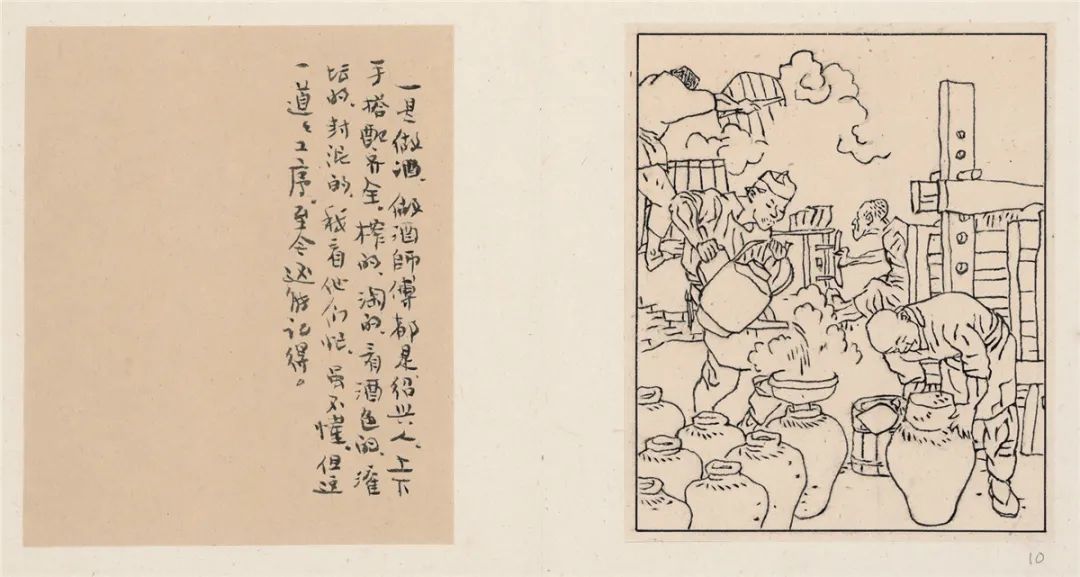 一是做酒、做酒師傅都是绍兴人、上下
手搭配齐全、榨的、淘的、看酒色的、灌
坛的、封泥的、我看他们忙、虽不懂、但这
一道々工序、至今还能记得。
10